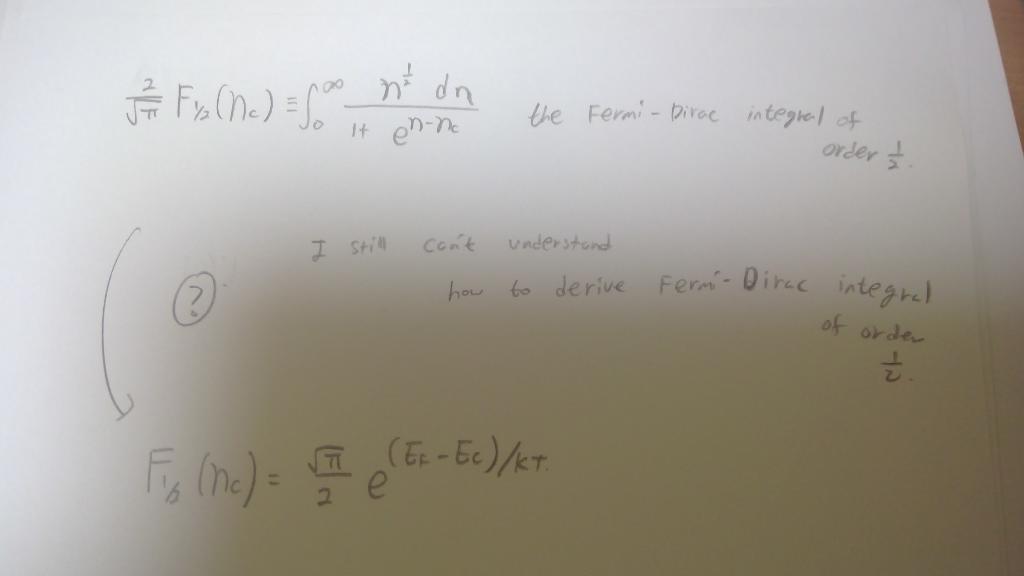 2/√π F1/2(nc) ≡ ∫0^∞ n^1/2 dn / 1+ e^n-nc the Fermi-Dirac integral of
order 1/2.
I still can't understand
? how to derive Fermi-Dirac integral
of order
1/2.
F1/2 (nc) = √π/2 e^(EF-EC)/kT.